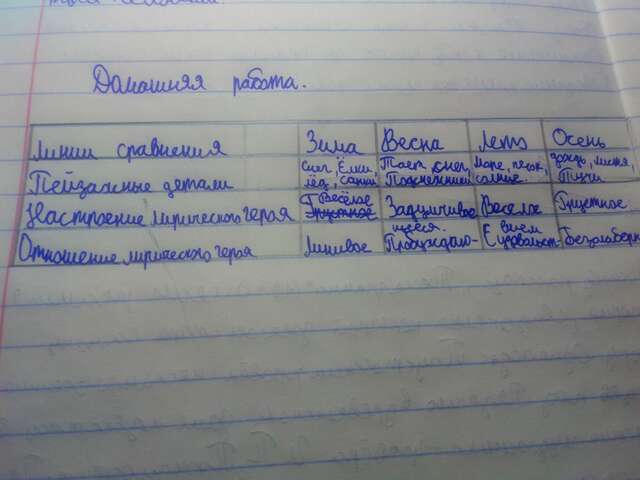 Домашняя работа.
Линии сравнения Зима Весна Лето Осень
Пейзажные детали Снег, Ёлки, лёд, санки Тает снег, Подснежники море, песок, солнце. дождь, листья, Тучи
Настроение лирического героя Весёлое Грустное Задумчивое Веселое Грустное
Отношение лирического героя Ленивое Пробуждаю-щееся. С удовольст-вием